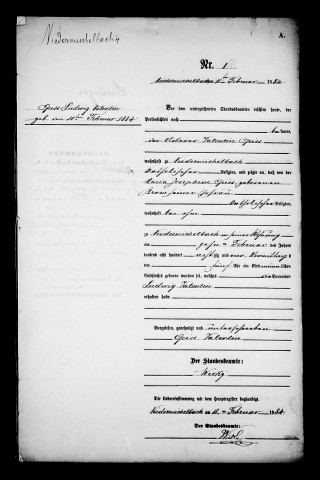 Niedermichelbach 4
A.
Nr. 1
Niedermichelbach am 11ten Februar 1884
Geis Ludwig Valentin
geb. den 10ten Februar 1884
Vor dem unterzeichneten Standesbeamten erschien heute, der
Persönlichkeit nach
kannt,
der Valentin Geis
zu Niedermichelbach
katholischer Religion, und zeigte an, daß von der
Maria Josephine Geis geborenen
seiner Ehefrau
katholischer Religion,
bei ihm
zu Niedermichelbach in seiner Wohnung
am zehn ten Februar des Jahres
tausend acht hundert achtzig und vier Vormittags
um fünf Uhr ein Kind männlichen
Geschlechts geboren worden sei, welches die Vornamen
Ludwig Valentin
erhalten habe
Vorgelesen, genehmigt und unterschrieben
Geis Valentin
Der Standesbeamte:
Die Uebereinstimmung mit dem Hauptregister beglaubigt.
Niedermichelbach am 11ten Februar 1884
Der Standesbeamte: